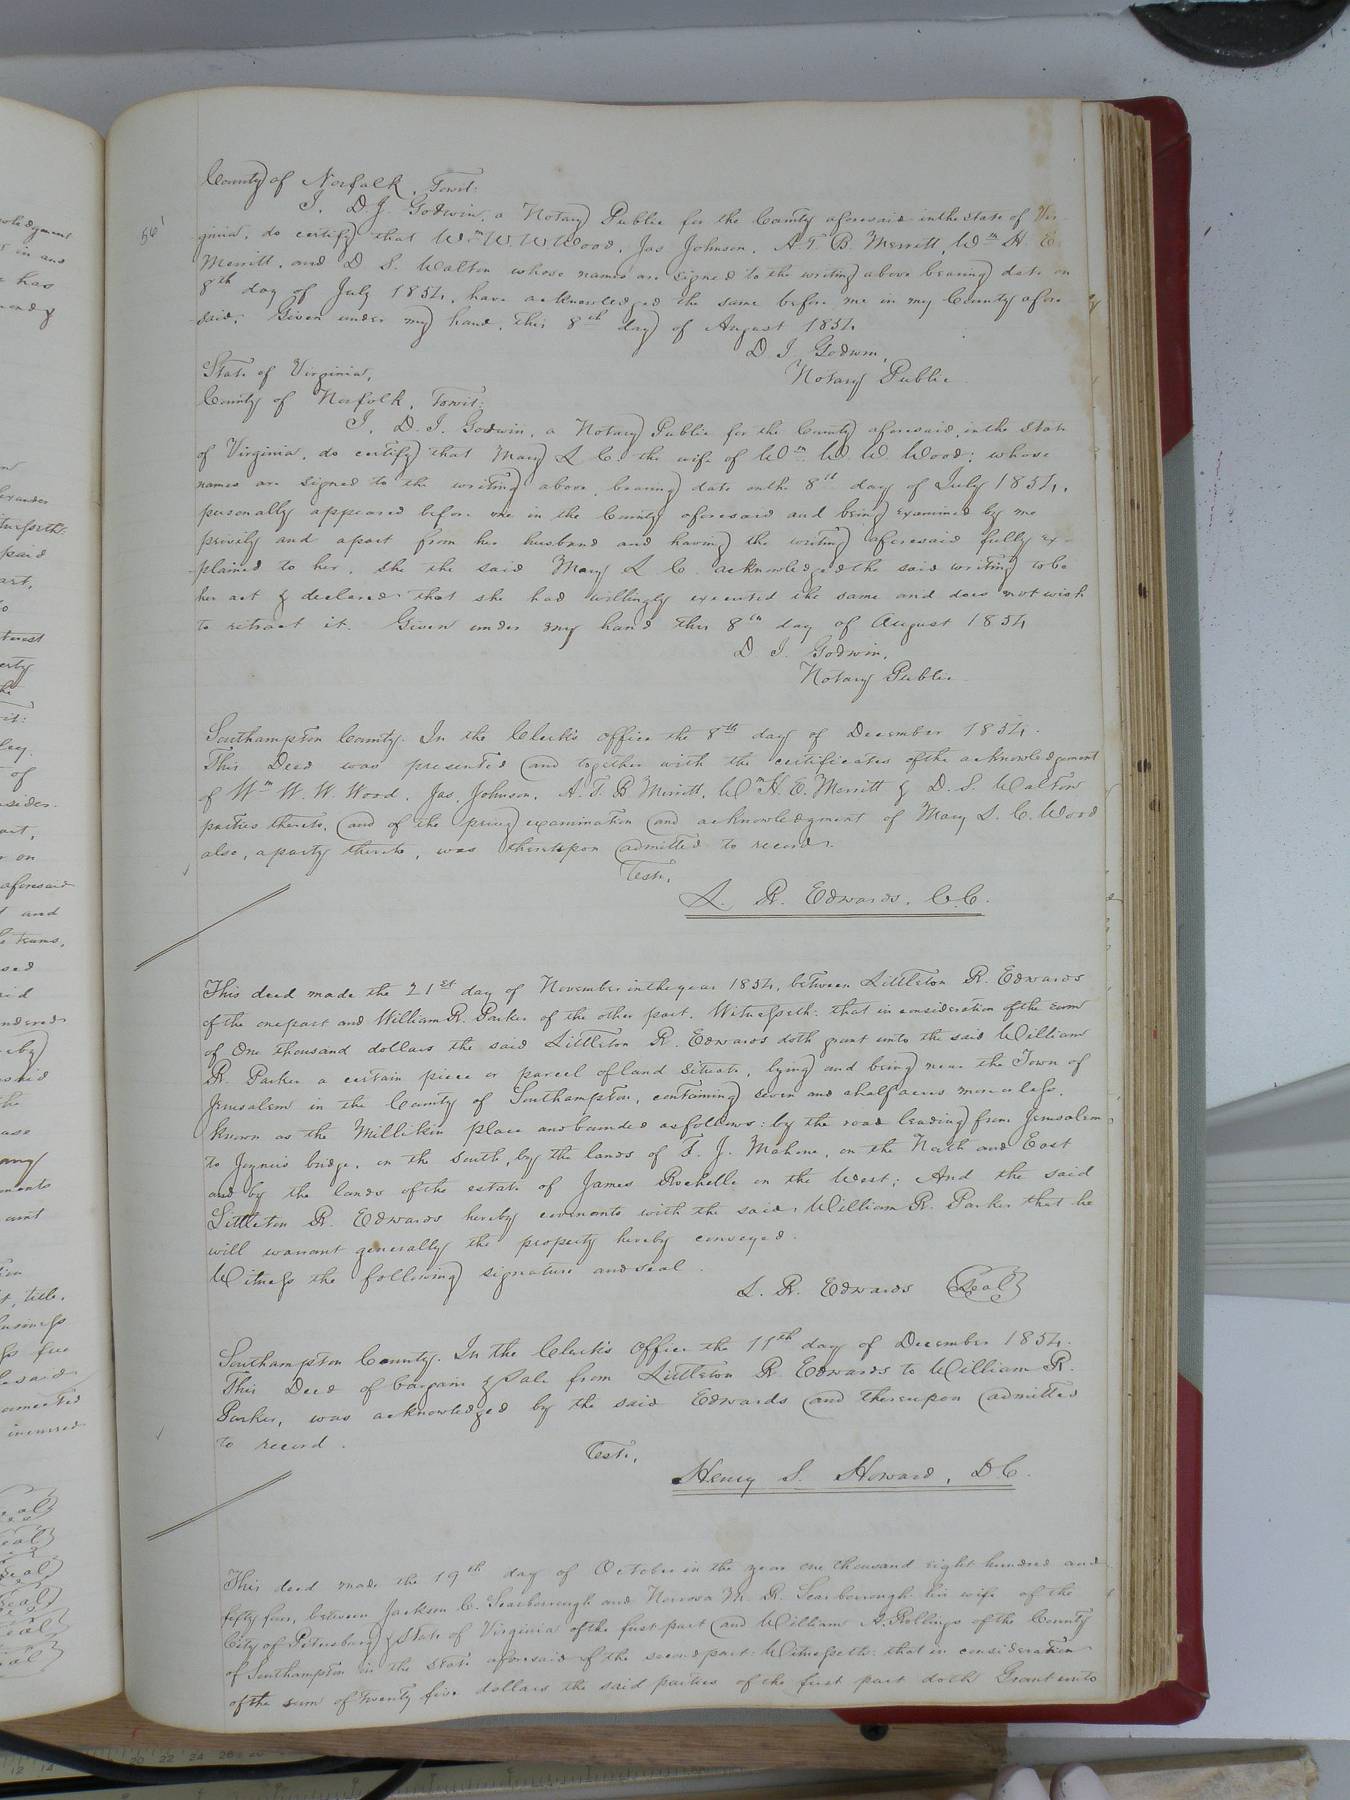 56
County of Norfolk, Towit:
I, D. J. Godwin, a Notary Public for the County aforesaid in the State of Vir-
ginia, do certify that Wm. W. W Wood, Jas Johnson, A. T B. Merritt, Wm H. E
Merritt, and D S. Walton whose names are signed to the writing above bearing date on
8th day of July 1854, have acknowledged the same before me in my County afore
said, Given under my hand, this 8th day of August 1854
D J Godwin,
Notary Public
State of Virginia,
County of Norfolk, Towit:
I, D. J. Godwin, a Notary Public for the County aforesaid, in the State
of Virginia, do certify that Mary L C. the wife of Wm W. W. Wood; whose
names are signed to the writing above, bearing date on the 8th day of July 1854,
personally appeared before me in the County aforesaid and being examined by me
privily and apart from her husband and having the writing aforesaid fully ex-
plained to her, she the said Mary L C. acknowledged the said writing to be
her act & declared that she had willingly executed the same and does not wish
to retract it. Given under my hand this 8th day of August 1854
D J. Godwin,
Notary Public
Southampton County. In the Clerk's office the 8th day of December 1854.
This Deed was presented and together with the certificates of the acknowledgement
of Wm W. W. Wood, Jas, Johnson, A. T. B Merritt, Wm H. E. Merritt & D. S. Walton
parties thereto, and of the privy examination and acknowledgment of Mary L. C. Wood
also, a party thereto, was thereupon admitted to record.
Teste,
L. R. Edwards, C.C.
This deed made the 21st day of November in the year 1854, between Littleton R. Edwards
of the one part and William R. Parker of the other part, Witnesseth: that in consideration of the sum
of One thousand dollars the said Littleton R. Edwards doth grant unto the said William
R. Parker a certain piece or parcel of land situate, lying and being near the Town of
Jerusalem in the County of Southampton, containing seven and a half acres more or less,
known as the Millikin place and bounded as follows: by the road leading from Jerusalem
to bridge, on the South, by the lands of T. J. Mahone, on the North and East
and by the lands of the estate of James Rochelle on the West; And the said
Littleton R. Edwards hereby covenants with the said William R. Parker that he
will warrant generally the property hereby conveyed.
Witness the following signature and seal.
L. R. Edwards Seal
Southampton County. In the Clerk's Office the 11th day of December 1854.
This Deed of bargain & Sale from Littleton R Edwards to William R.
Parker, was acknowledged by the said Edwards and thereupon admitted
to record.
Teste,
Henry S. Howard, D.C.
This deed made the 19th day of October in the year one thousand eight hundred and
fifty four, between Jackson C. Scarborough and M. R. Scarborough his wife of the
City of Petersburg & State of Virginia of the first part and William A. Rollings of the County
of Southampton in the State aforesaid of the second part: Witnesseth: that in consideration
of the sum of Twenty five dollars the said parties of the first part doth Grant unto